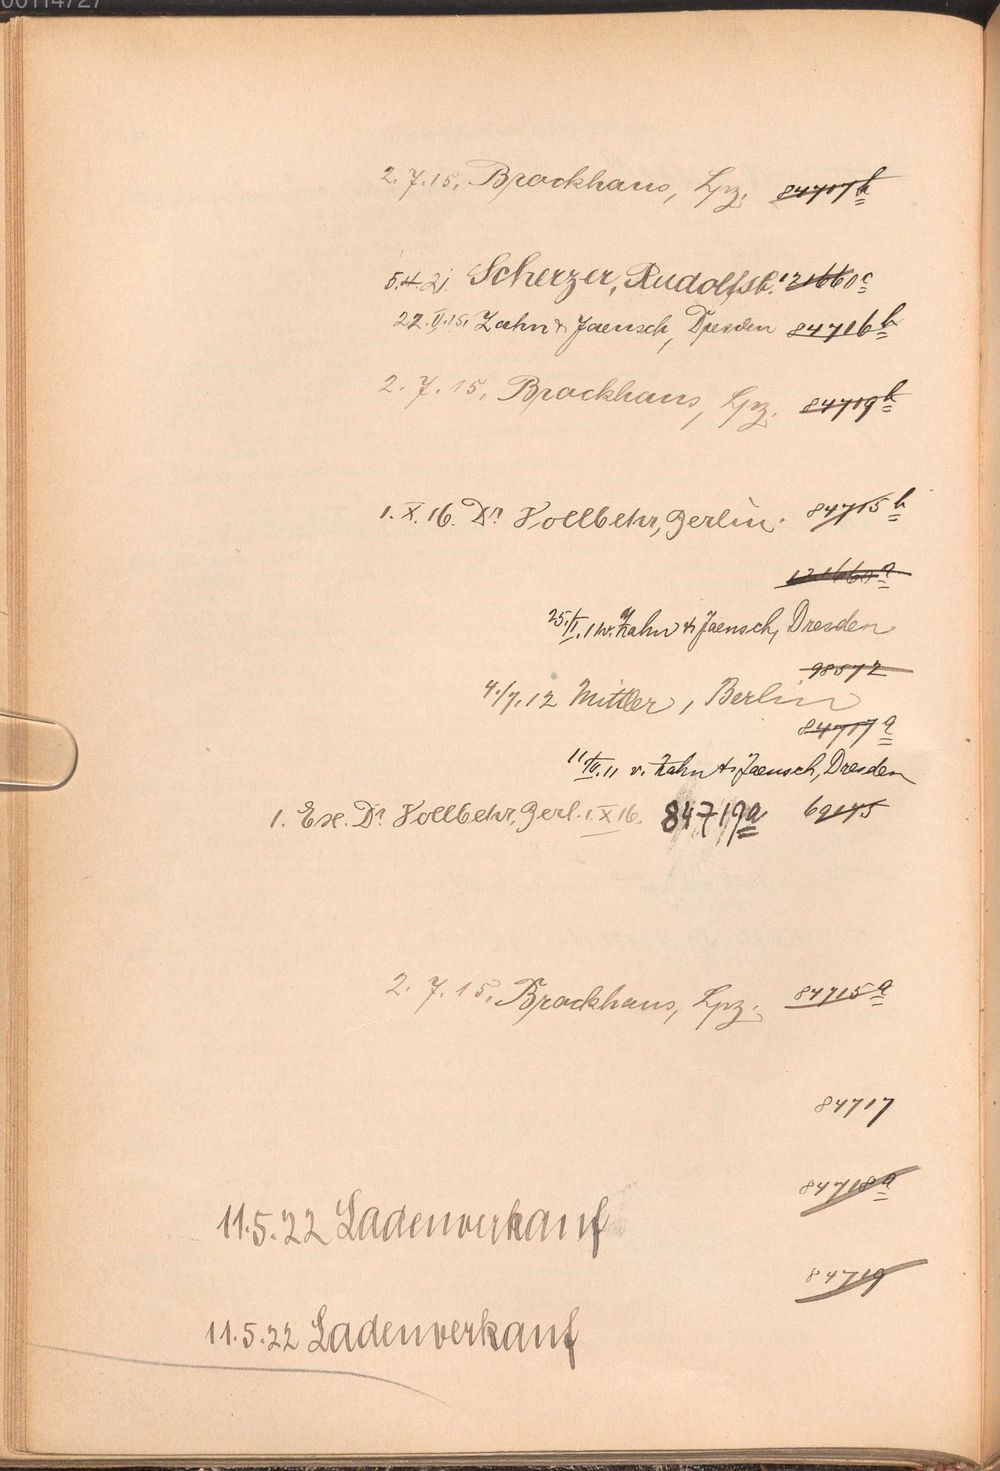 00114727
2. 7. 15. Brockhaus, Lpz. 84717b
5.4.21. Scherzer, Rudolfst. 121660c
22. V. 15, Zahn & Jaensch, Dresden 84716b
2. 7. 15, Brockhaus, Lpz. 84719b
1. X. 16. Dr Vollbehr, Berlin. 84715b
121660a
25./I. v. Zahn & Jaensch, Dresden
98572
4./7.12 Mittler, Berlin
84717a
11/IV.11 v. Zahn & Jaensch, Dresden
1. Ex. Dr Vollbehr, Berl. 1. X 16. 84719a 69145
2. 7. 15, Brockhaus, Lpz. 84715a
84717
84718a
11.5.22 Ladenverkauf
84719
11.5.22 Ladenverkauf